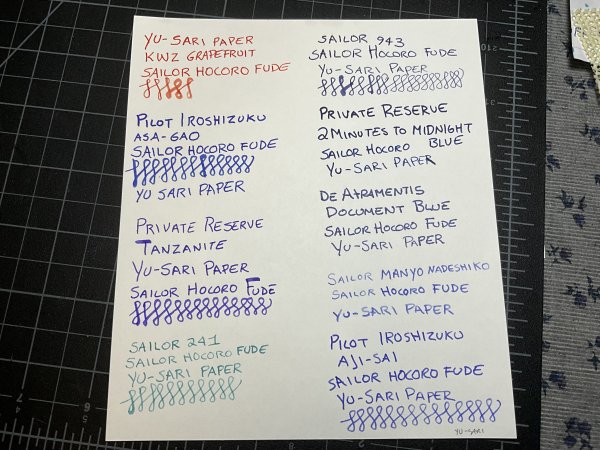 YU-SARI PAPER
KWZ GRAPEFRUIT
SAILOR HOCORO FUDE
PILOT IROSHIZUKU
ASA-GAO
SAILOR HOCORO FUDE
YU SARI PAPER
PRIVATE RESERVE
TANZANITE
YU-SARI PAPER
SAILOR HOCORO FUDE
SAILOR 241
SAILOR HOCORO FUDE
YU-SARI PAPER
SAILOR 943
SAILOR HOCORO FUDE
YU-SARI PAPER
PRIVATE RESERVE
2 MINUTES TO MIDNIGHT
SAILOR HOCORO BLUE
YU-SARI PAPER
DE ATRAMENTIS
DOCUMENT BLUE
SAILOR HOCORO FUDE
YU-SARI PAPER
SAILOR MANYO NADESHIKO
SAILOR HOCORO FUDE
YU-SARI PAPER
PILOT IROSHIZUKU
AJI-SAI
SAILOR HOCORO FUDE
YU-SARI PAPER
YU-SARI